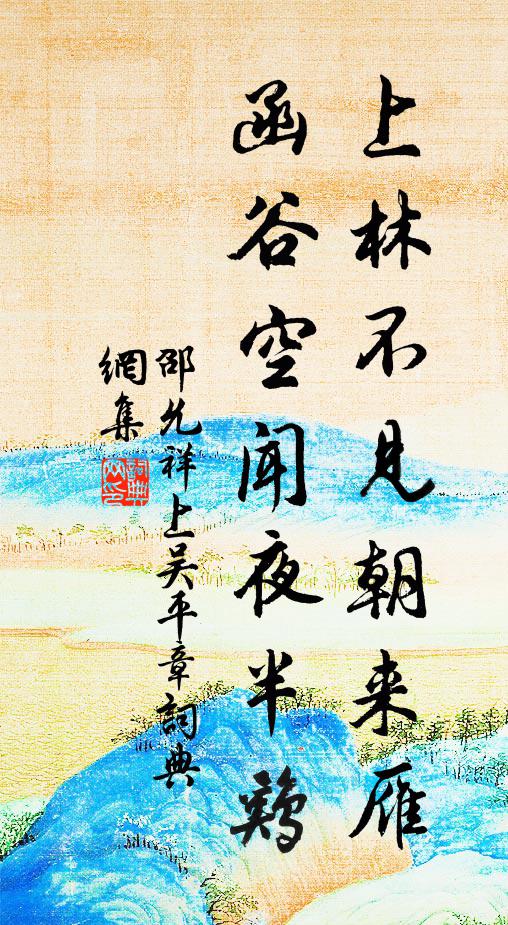 上林不见朝来雁
函谷空闻夜半鸡
邵允祥上吴平章詞典
網集
詞典
网印